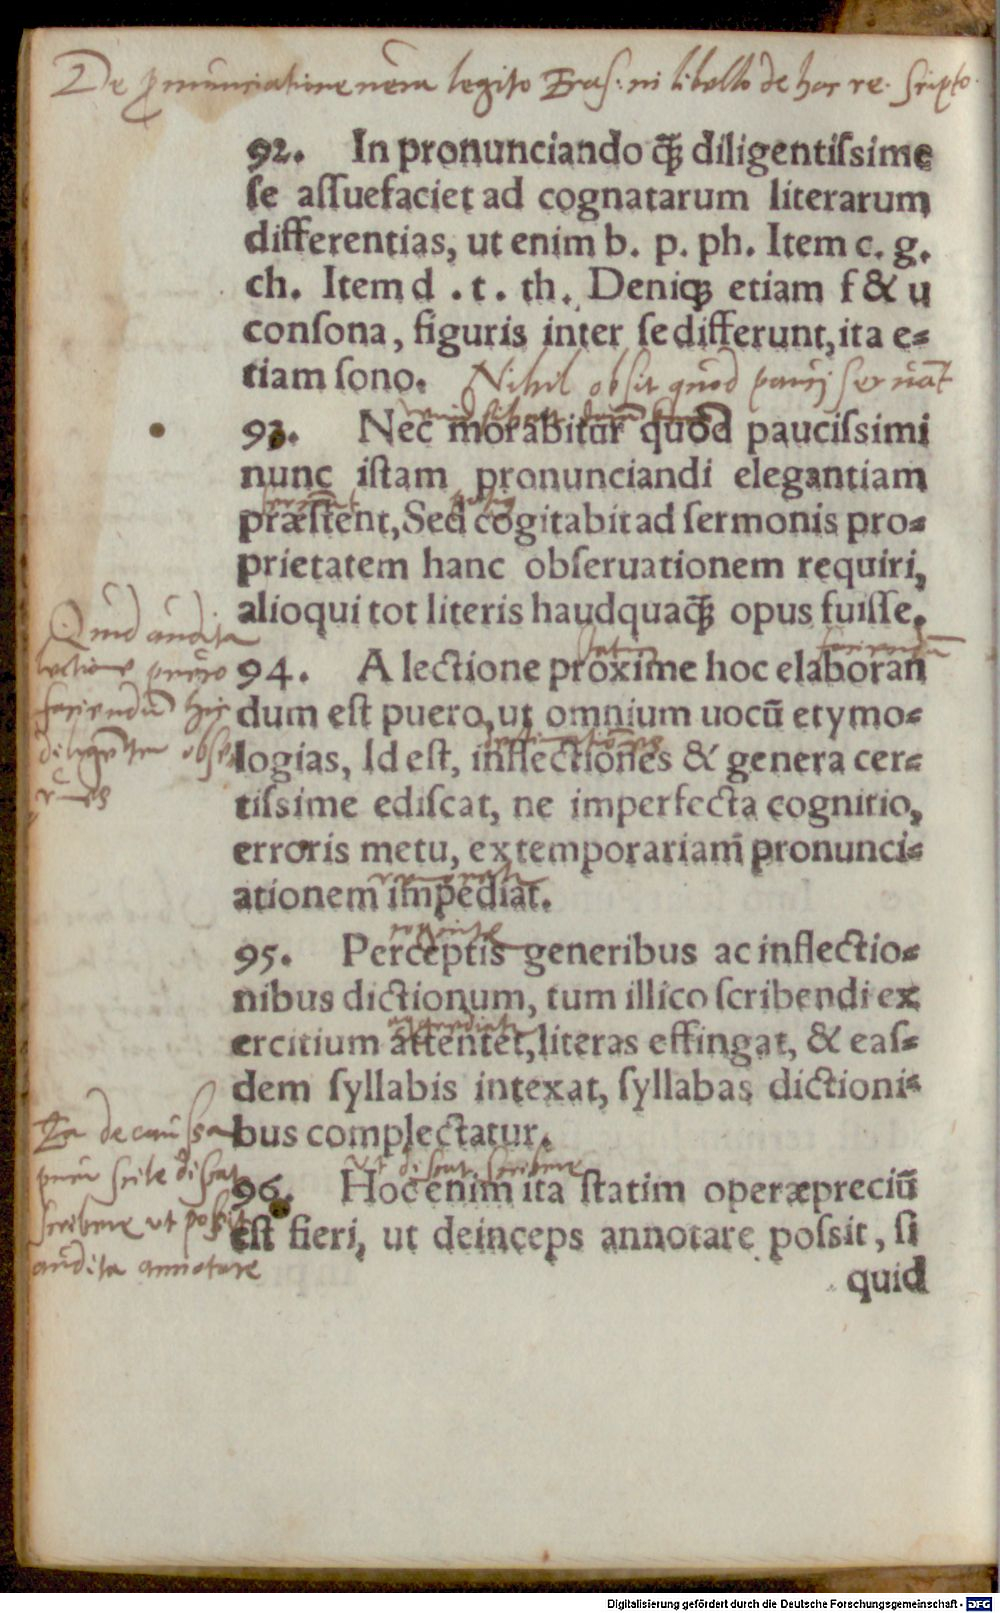 De pronunciatione vera legito Eras: in libello de hac re scripto.
92. In pronunciando q̃ꝫ diligentiſsime
ſe aſſuefaciet ad cognatarum literarum
differentias, ut enim b. p. ph. Item c. g.
ch. Item d . t . th. Deniqꝫ etiam f & u
conſona, figuris inter ſe differunt, ita e-
tiam ſono.
Nihil obsit quod pauci servāt
93. Nec morabitur quod pauciſsimi
nunc iſtam pronunciandi elegantiam
præſtent, Sed cogitabit ad ſermonis pro-
prietatem hanc obſeruationem requiri,
alioqui tot literis haudquaq̃ꝫ opus fuiſſe.
Quid audita
lectione puero
faciendū hic
94. A lectione proxime hoc elaboran
faciendū
dum eſt puero, ut omnium uocū etymo-
logias, Id eſt, inflectiones & genera cer-
tiſsime ediſcat, ne imperfecta cognitio,
erroris metu, extemporariam̃ pronunci-
ationem impediat.
95. Perceptis generibus ac inflectio-
nibus dictionum, tum illico ſcribendi ex
ercitium attentet, literas effingat, & eaſ-
dem ſyllabis intexat, ſyllabas dictioni-
bus complectatur.
Ea de caussa
puer scite discat
scribere ut possit
audita annotare
ut discat scribere
96. Hoc enim ita ſtatim operæpreciū
eſt fieri, ut deinceps annotare poſsit, ſi
quid
Digitalisierung gefördert durch die Deutsche Forschungsgemeinschaft - DFG